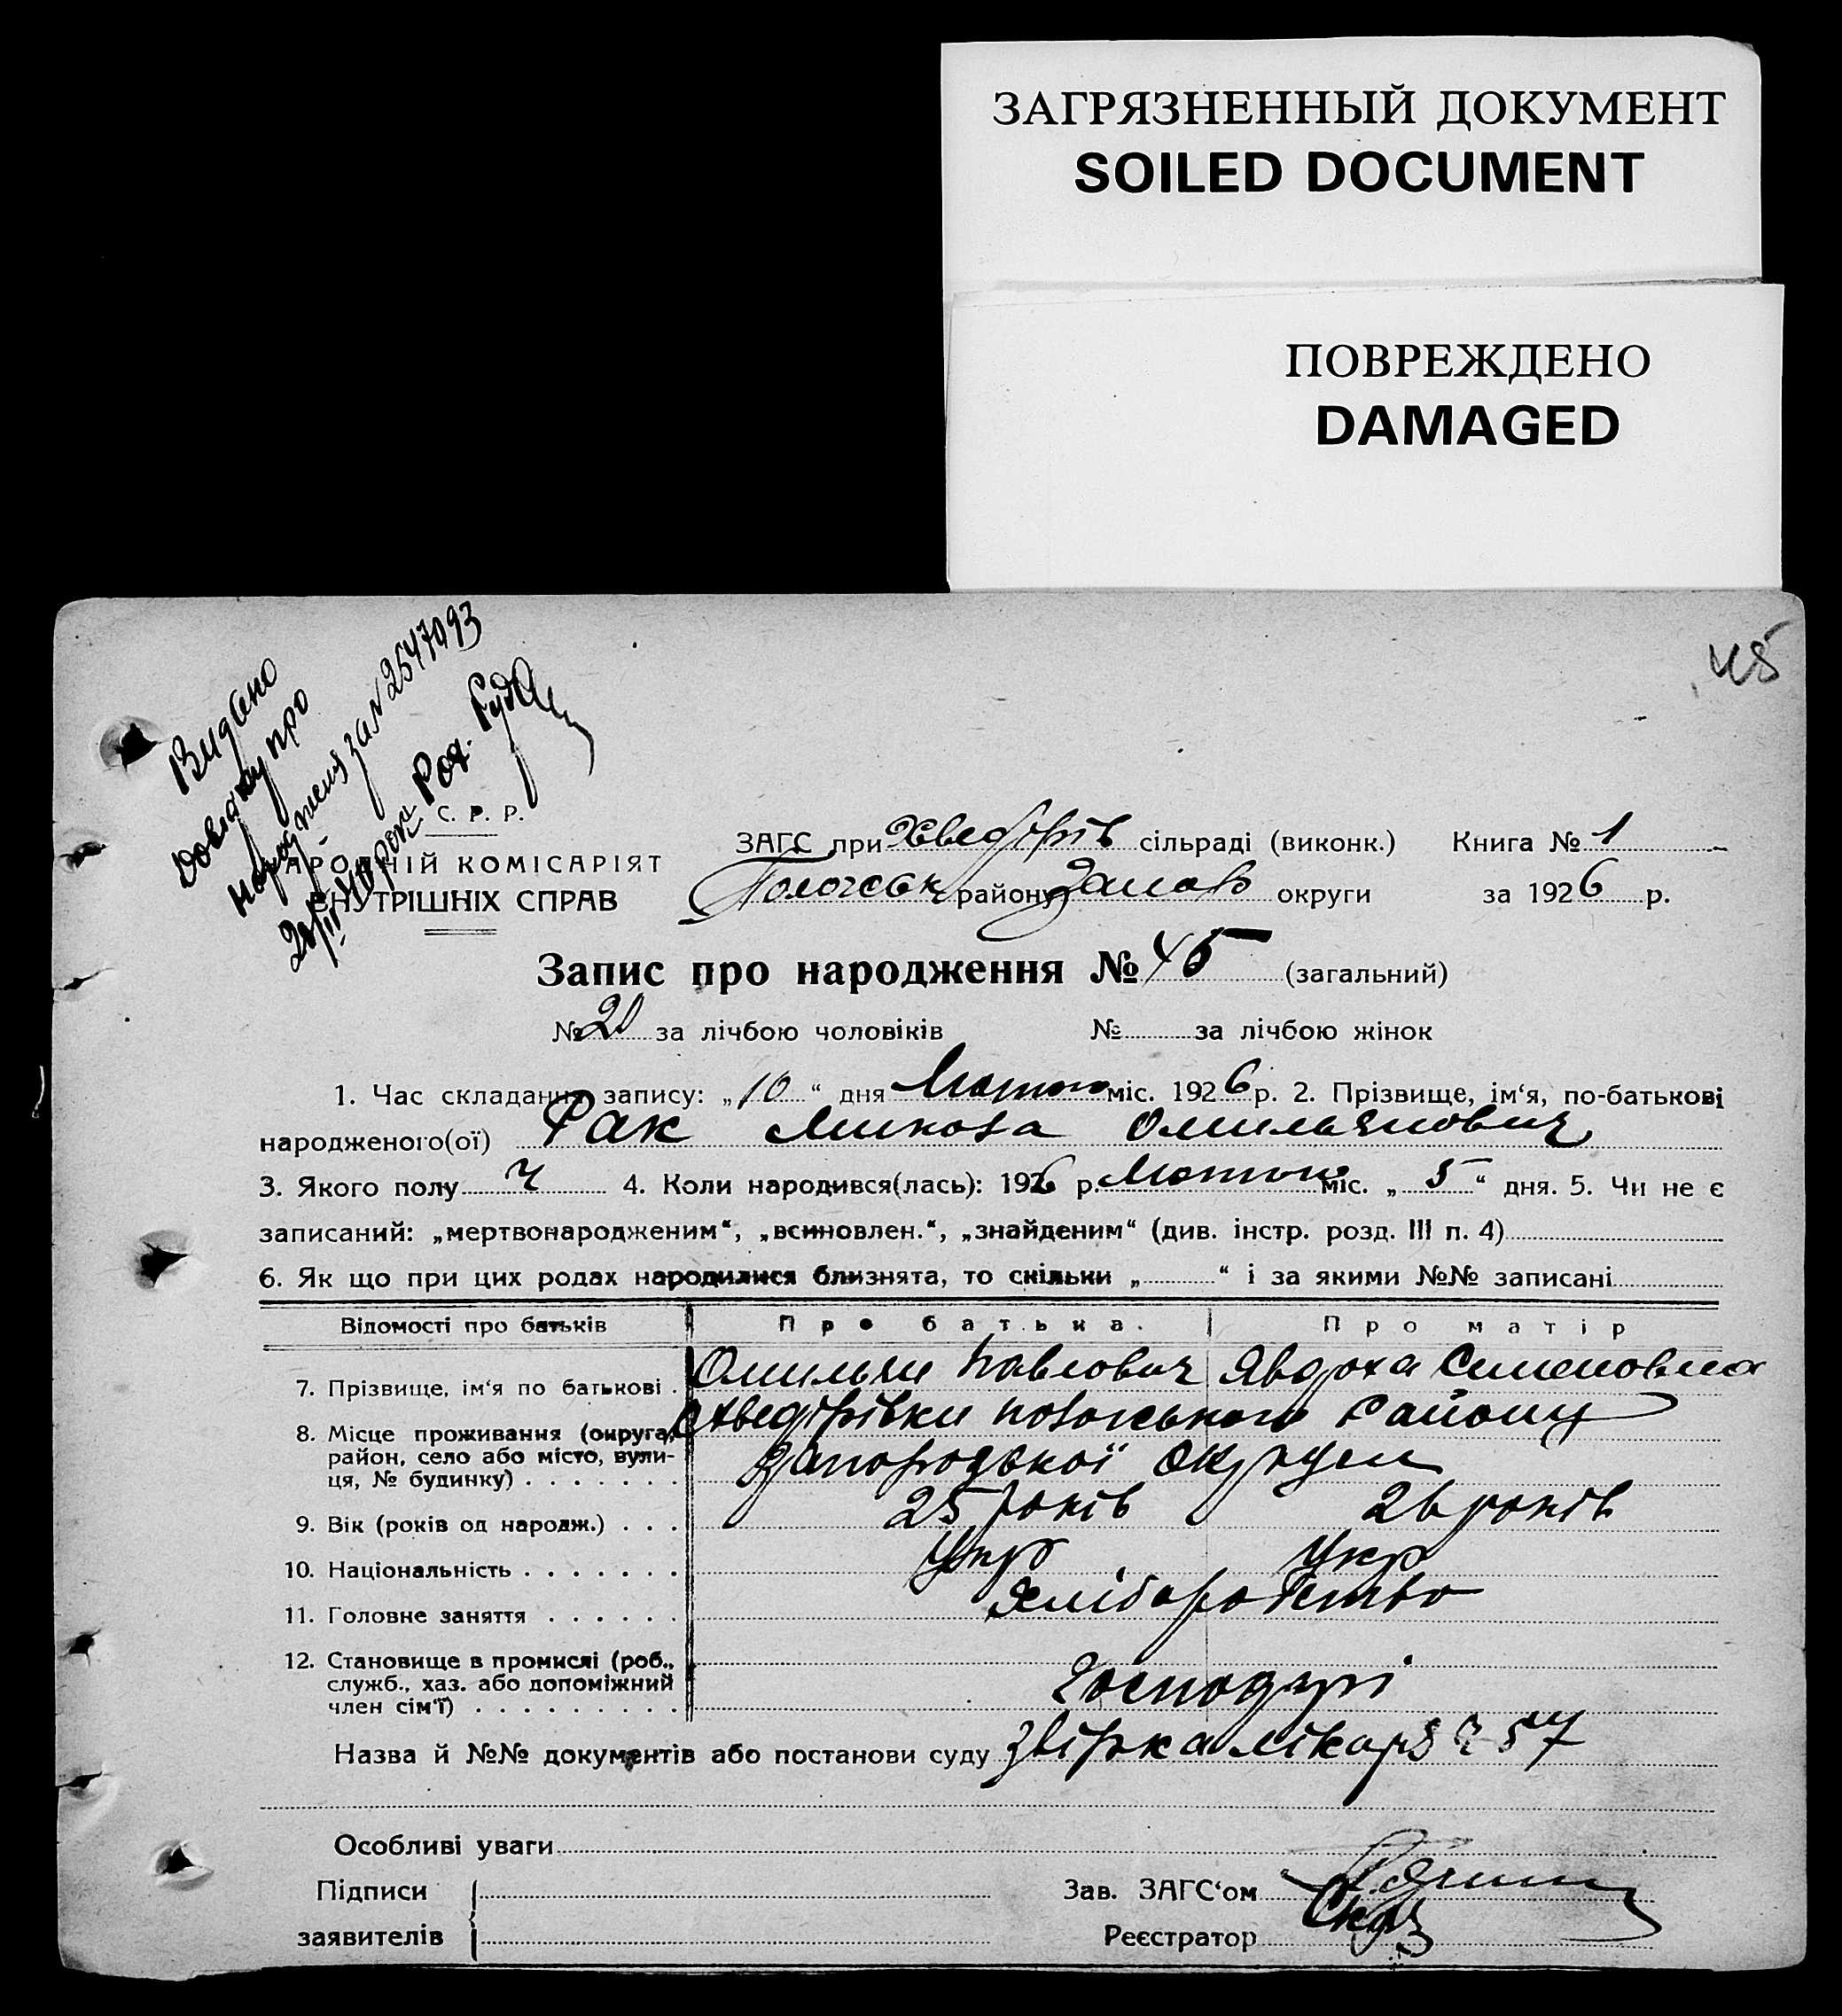 ЗАГРЯЗНЕННЫЙ ДОКУМЕНТ
SOILED DOCUMENT
ПОВРЕЖДЕНО
DAMAGED
45
Видано
довідку про
народження за № 2547093
С. Р. Р.
НІЙ КОМІСАРІЯТ
ВНУТРІШНІХ СПРАВ
ЗАГС при Хведірів сільраді (виконк.) Книга № 1
Пологськ району Запор округи за 1926 р.
Запис про народження № 45 (загальний)
№ 20 за лічбою чоловіків № за лічбою жінок
1. Час складання запису: „10“ дня Лютого міс. 1926 р. 2. Прізвище, ім‘я, по-батькові
народженого(ої) Рак Микола Омильянович
3. Якого полу ч 4. Коли народився(лась): 1926 р. Лютого міс. „5“ дня. 5. Чи не є
записаний: „мертвонародженим“, „всиновлен.“, „знайденим“ (див. інстр. розд. III п. 4)
6. Як що при цих родах народилися близнята, то скільки „ “ і за якими №№ записані
Відомості про батьків Про батька. Про матір
7. Прізвище, ім‘я по батькові Омильян Павлович Явдоха Семеновна
8. Місце проживання (округа, Хведірівки пологського району
район, село або місто, вули-
ця, № будинку) запорозської округи
9. Вік (років од народж.) 25 років 26 років
10. Національність Укр Укр
11. Головне заняття Хліборобство
12. Становище в промислі (роб.,
служб., хаз. або допоміжний
член сім‘ї) Господарі
Назва й №№ документів або постанови суду звірка лікаря 257
Особливі уваги
Підписи
заявителів
Зав. ЗАГС‘ом
Реєстратор